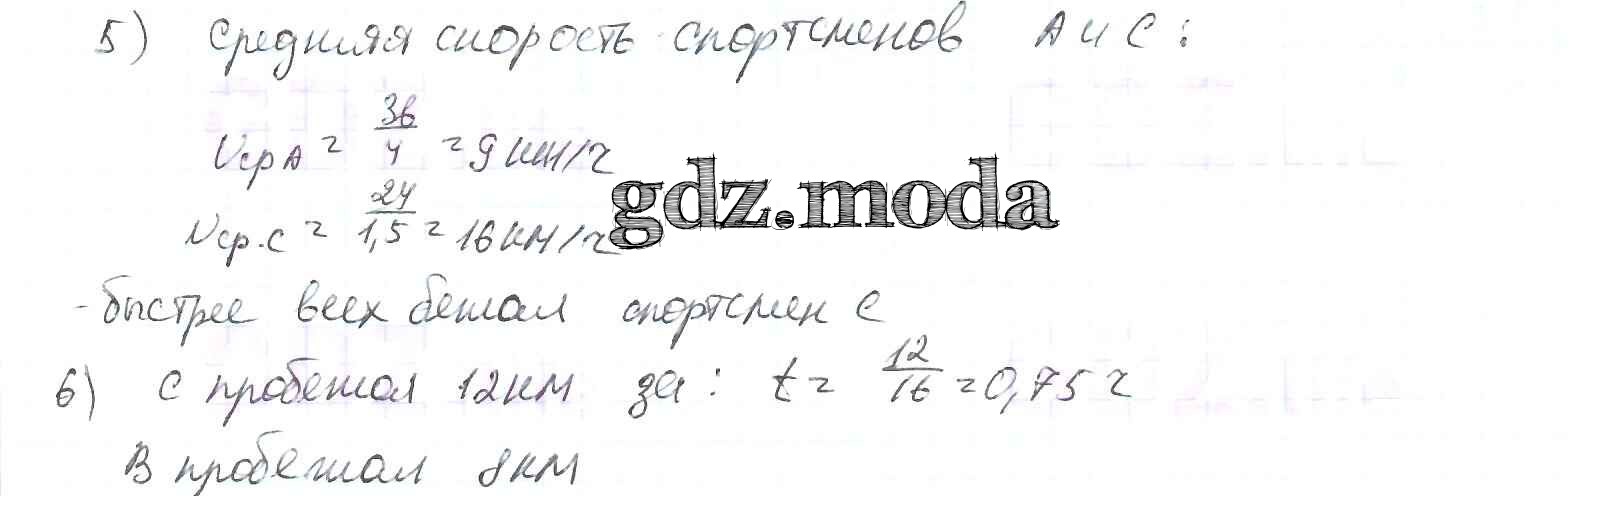 5) Средняя скорость спортсменов А и С:
Vср А = 36/4 = 9 км/ч
gdz.moda
Vср.С = 24/1,5 = 16 км/ч
- быстрее всех бежал спортсмен С
6) С пробежал 12 км за: t = 12/16 = 0,75 ч
В пробежал 8 км